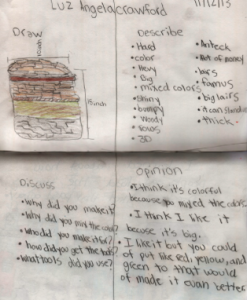 Luz Angela crawford
11/12/13
Draw
Describe
• Hard
• color
• Heavy
• Big
• mixed colors
• Shiny
• bumpy
• Woody
• 3D
• Anteck
• lot of money
• bars
• famus
• big lairs
• it can stand
• thick.
Discuss
• Why did you make it?
• Why did you mix the colors?
• Who did you make it for?
• how did you get the bars?
• What tools did you use?
Opinion
• I think it's colorful
because you mixed the colors.
• I think I like it
becose it's big.
• I like it but you could
of put like red, yellow, and
green so that would
of made it even better